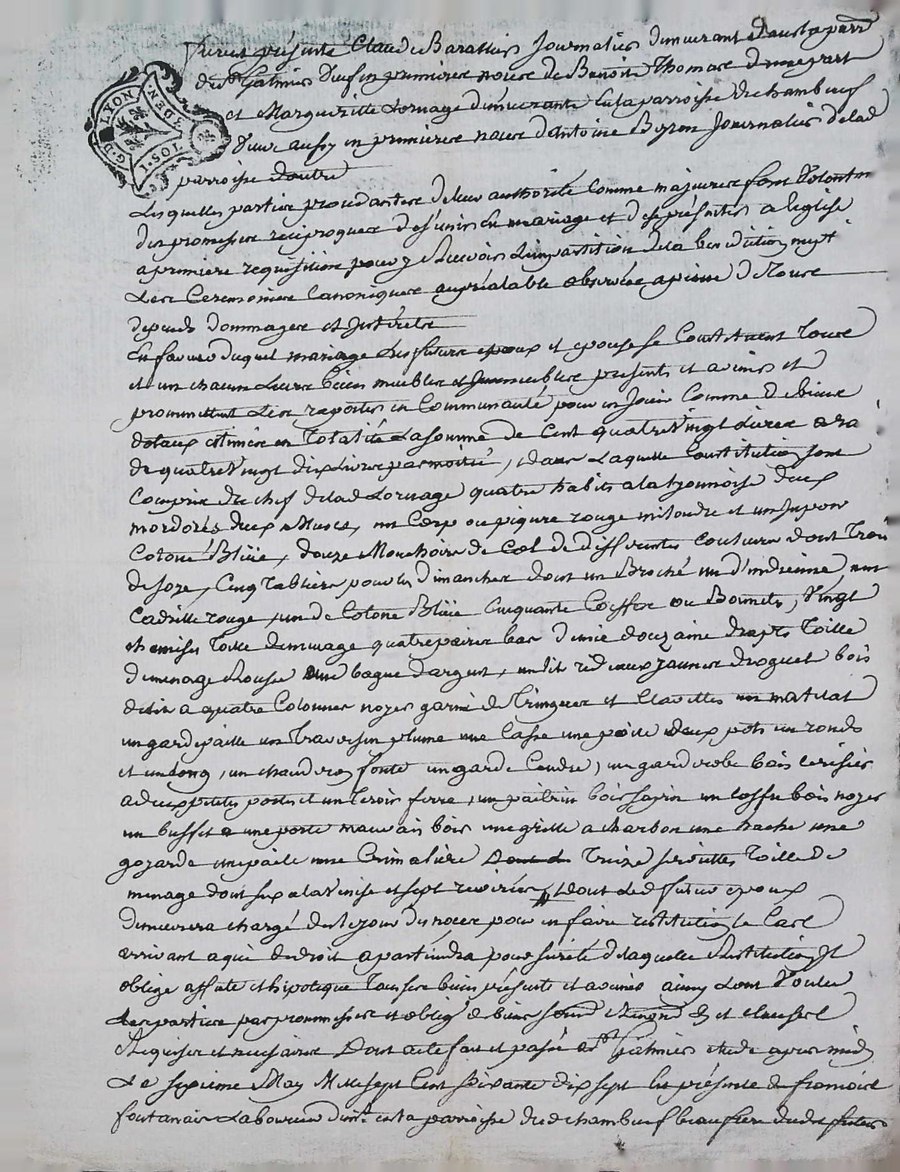 G.D. LYON DEN. 1.SOL
furent présents Claude Barattier Journalier demeurant dans la parr
de St Galmier veuf en premieres noces de Benoite Thomas d'une part
et Margueritte Lornage demeurante en la parroisse de chambeuf
veuve aussy en premieres noces d'antoine Boyron Journalier de lad
parroisse d'autre
Lesquelles parties procedantes de leur authorité comme majeures font volont
des promesses reciproques de s'unir en mariage et de se présenter a l'eglise
a premiere requisition pour y Recevoir L'impartition de la benediction nupt
Les Ceremonies Canoniques au préalable observées a peine de Tous
depends dommages et Interets
En faveur duquel mariage Les futurs epoux et epouse se Constituent Tous
et un chacun Leurs biens meubles et Immeubles presents et avenir et
promettent Les reporter en Communauté pour en Jouir Comme de biens
dotaux estimés en Totalité La somme de Cent quatre Vingt Livres a ra
de quatre Vingt dix Livres par moitié, dans Laquelle Constitution sont
Compris du chef de lad Lornage quatre habits a la Lyonnoise deux
mordorés deux , un Corp ou piqure rouge et un Jupon
Cotone Bleüe, douze Mouchoirs de Col de differentes Couleurs dont Trois
de soye, Cinq Tabliers pour les dimanches dont un Broché un d'indienne un
Cadrille rouge, un de Cotone Bleüe Cinquante Coeffes ou Bonnets, Vingt
chemises Toille de menage quatre paires bas demie douzaine draps Toille
de menage Rousse une bague d'argent, un lit rideaux jaunes droguet bois
de lit a quatre Colonnes noyer garni de Tringues et Clavettes un matelat
un gardepaille un Traversin plume une Casse une poële deux pots un rond
et un long, un chauderon fonte un garde Cendre, un garderobe bois Cerisier
a deux petites portes et un Tiroir ferré, un paitrin bois sapin un Coffre bois noyer
un buffet a une porte mauvais bois une grille a charbon une hache une
goyarde une paile une Crimaliere Treize serviettes Toille de
menage dont six a la Venise et sept dont Led futur epoux
demeurera chargé du Jour des noces pour en faire restitution le Cas
arrivant a qui de droit apartiendra pour sureté de laquelle restitution Il
oblige affecte et hipoteque Tous ses biens présents et avenir ainsy L'ont Voulu
Les parties par promesses et obligé de biens soumis et clauses
Requises et necessaires Dont acte fait et passé a St Galmier etude apres midy
Le septieme May Mil sept Cent Soixante dix sept En présence de francois
fontanais Laboureur demt en la parroisse dud chambeuf beaufrere dud futurs